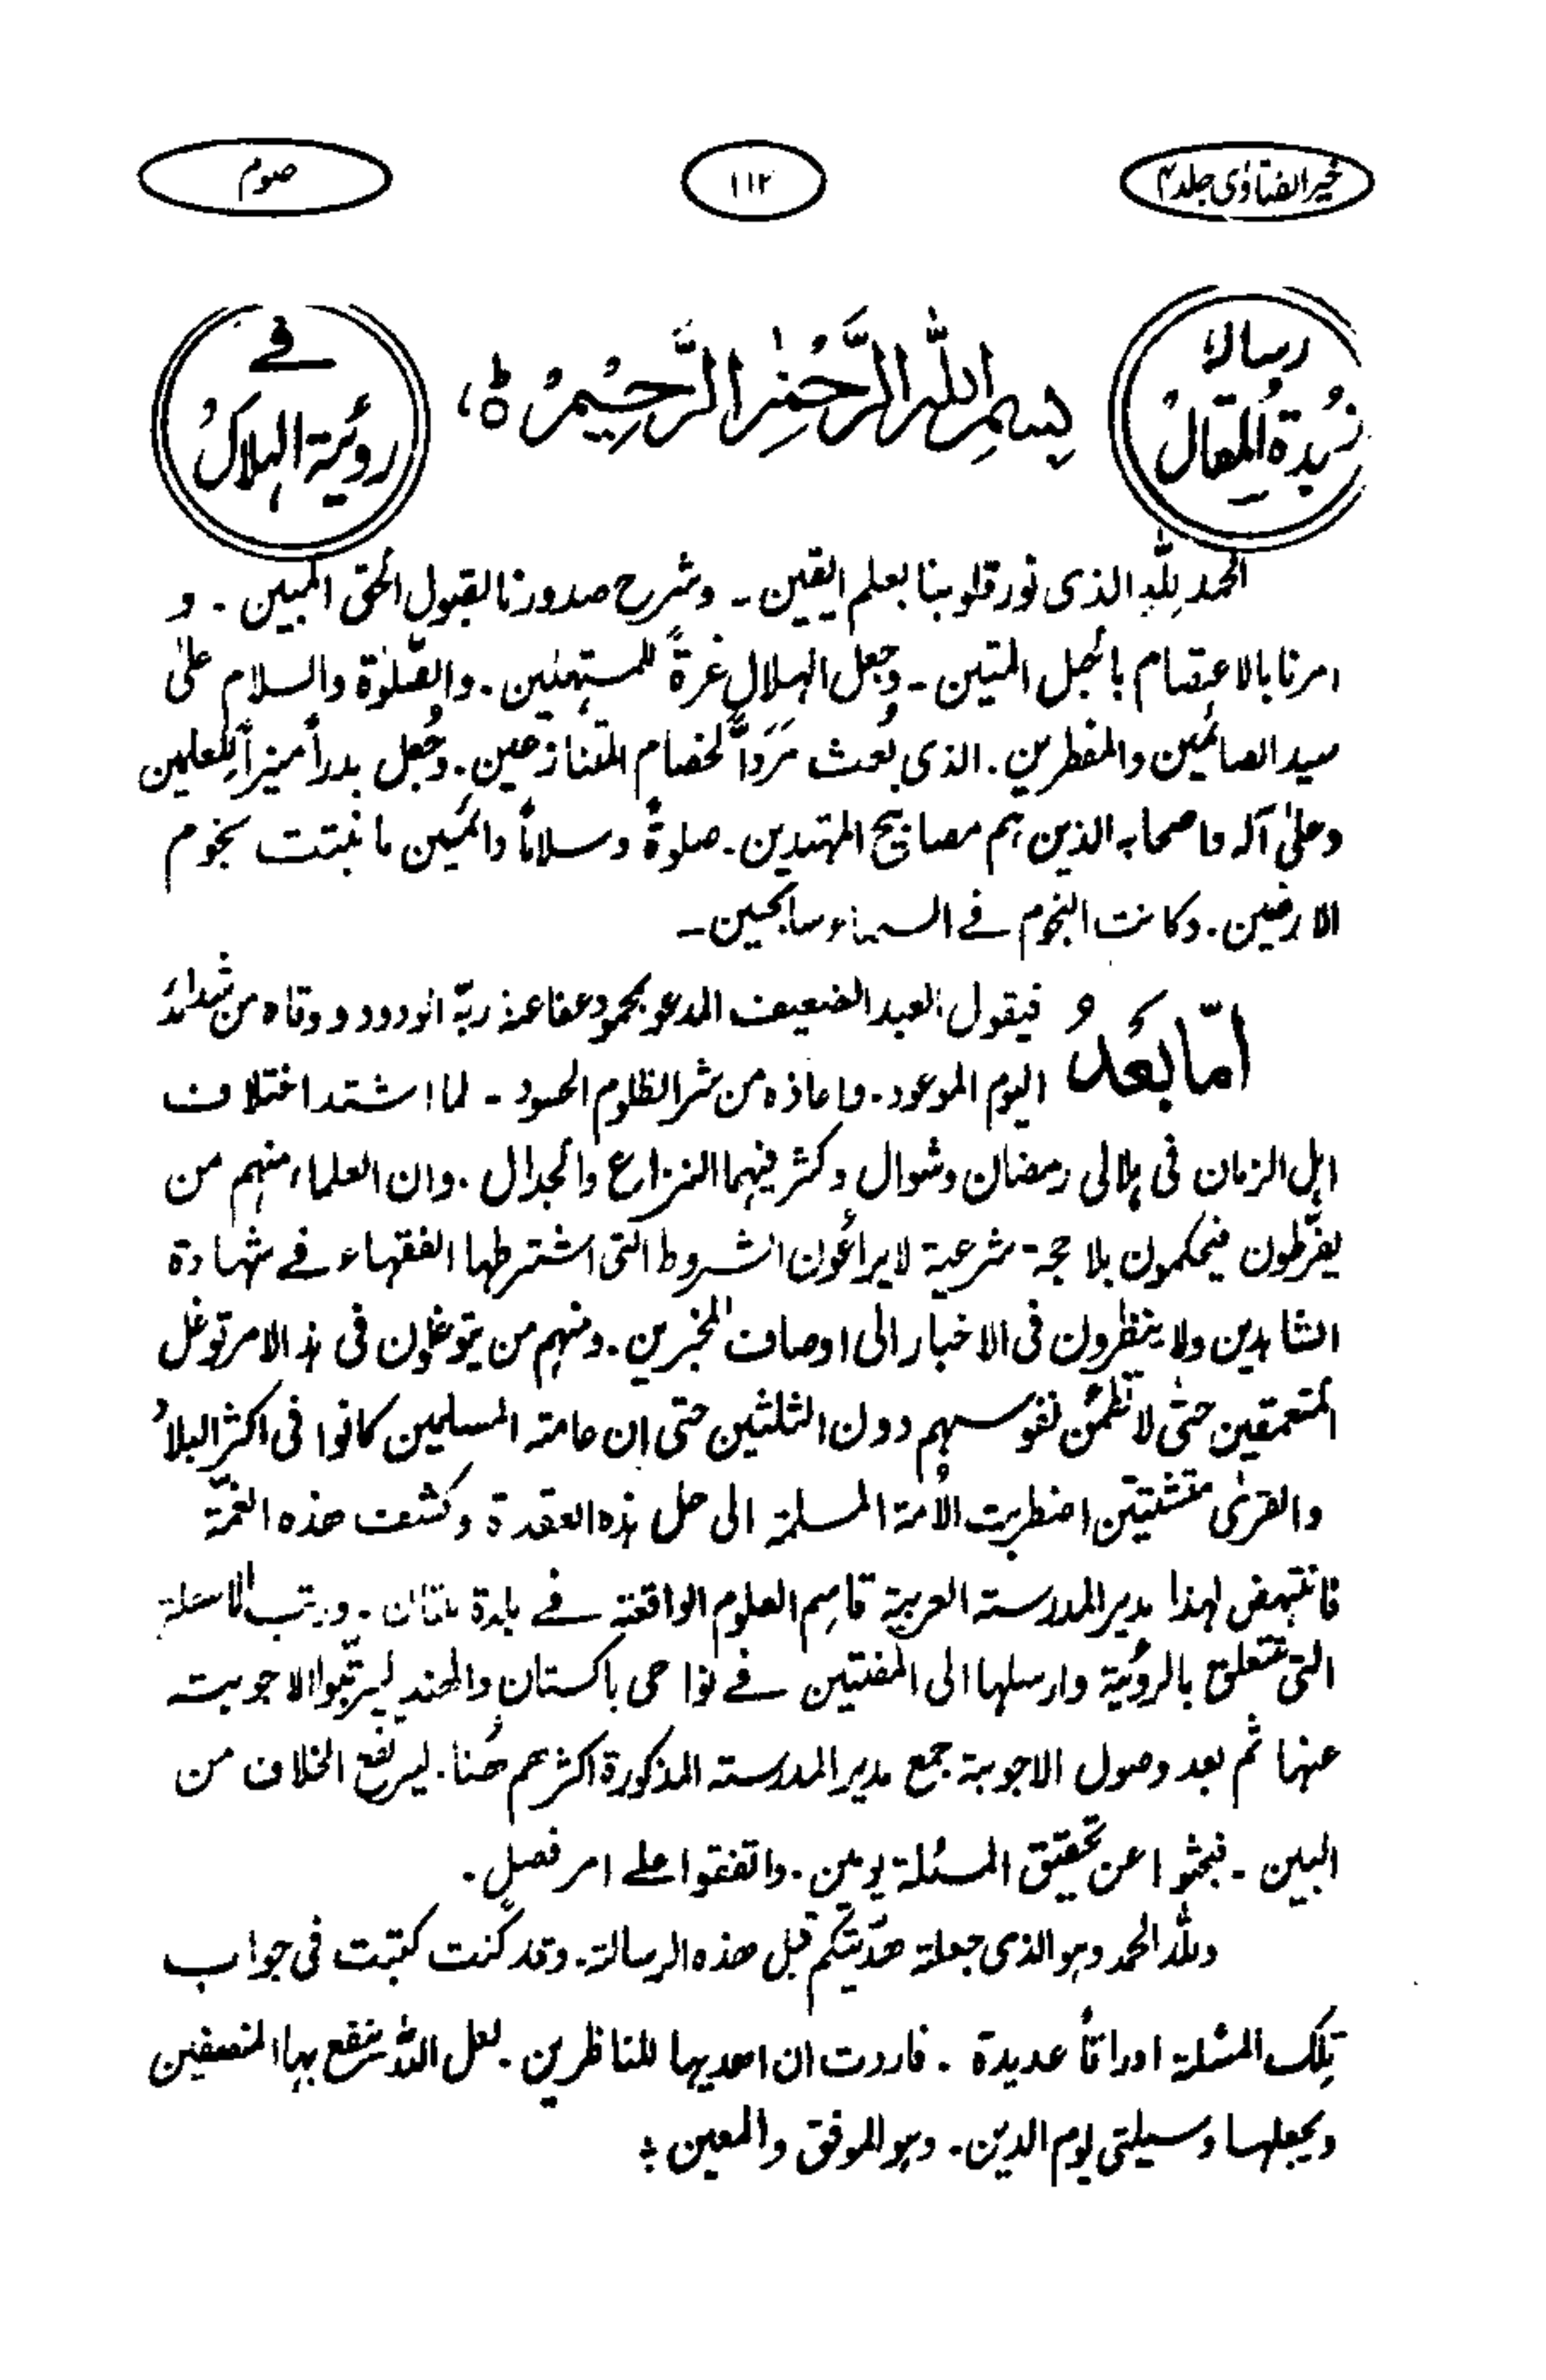 خیر الفتاوی جلد ۴
۱۱۲
صوم
رسالہ
زُبدة المقال
بِسمِ اللّٰہِ الرَّحمٰنِ الرَّحِیمِ ہ
فے
رویٔة الہلال
الحمد للّٰہ الذی نور قلوبنا بعلم الیقین ۔ وشرح صدورنا لقبول الحق المبین ۔ و
امرنا بالاعتصام بالحبل المتین ۔ وجعل الہلال غرةً للمستہلین ۔ والصّلوٰة والسلام علیٰ
سید الصائمین والمفطرین ۔ الذی بُعث مَرَدّاً لخصام المتنازعین ۔ وجُعل بدراً منیراً للمعلمین
وعلیٰ آلہ واصحابہ الذین ہم مصابیح المہتدین ۔ صلوةً وسلاماً دائمین ما نبتت نجوم
الارضین ۔ وکانت النجوم فے السماء سابحین ۔
امّا بَعدُ فیقول العبد الضعیف المدعو بمحمود عفا عنہ ربّہ الودود ووقاہ من شدائد
الیوم الموعود ۔ واعاذہ من شر الظلوم الحسود ۔ لما اشتد اختلاف
اہل الزمان فی ہلالی رمضان وشوال وکثر فیہما النزاع والجدال ۔ وان العلماء منہم من
یفرّطون فیحکمون بلا حجة شرعیة لا یراعُون الشروط التی اشترطہا الفقہاء فے شہادة
الشاہدین ولا ینظرون فی الاخبار الی اوصاف المخبرین ۔ ومنہم من یتوغلون فی ہذا الامر توغل
المتعمقین حتیٰ لا تطمئن نفوسہم دون الثلثین حتی ان عامة المسلمین کانوا فی اکثر البلاد
والقریٰ متشتتین اضطربت الاُمة المسلمة الی حل ہذہ العقدة وکشف ھذہ الغمّة
فانتہض لہذا مدیر المدرسة العربیة قاسم العلوم الواقعة فے بلدة ملتان ۔ ورتب الاسئلة
التی تتعلق بالرویٔة وارسلہا الی المفتین فے نواحی باکستان والھند لیرتبّوا الاجوبة
عنہا ثم بعد وصول الاجوبة جمع مدیر المدرسة المذکورة اکثرہم ھُنا ۔ لیرتفع الخلاف من
البین ۔ فبحثوا عن تحقیق المسئلة یومین ۔ واتفقوا علے امر فصل ۔
وللّٰہ الحمد وہو الذی جعلة ھدّیتکم قبل ھذہ الرسالة ۔ وقد کنت کتبت فی جواب
تلک المسئلة اوراقاً عدیدة ۔ فاردت ان اھدیہا للناظرین ۔ لعل اللّٰہ ینفع بہا المنصفین
ویجعلہا وسیلتی یوم الدین ۔ وہو الموفق والمعین ؛